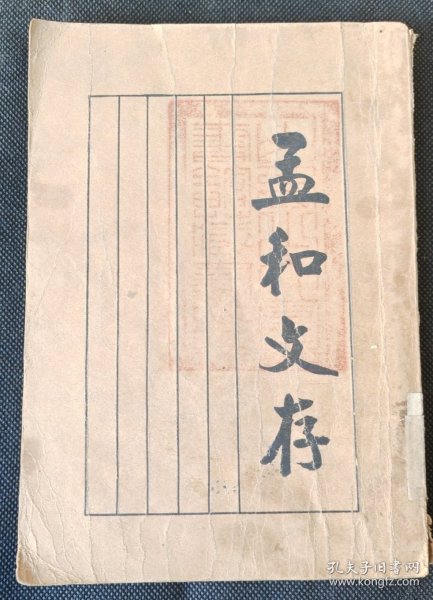 孟和文存
孔夫子旧书网
www.kongfz.com